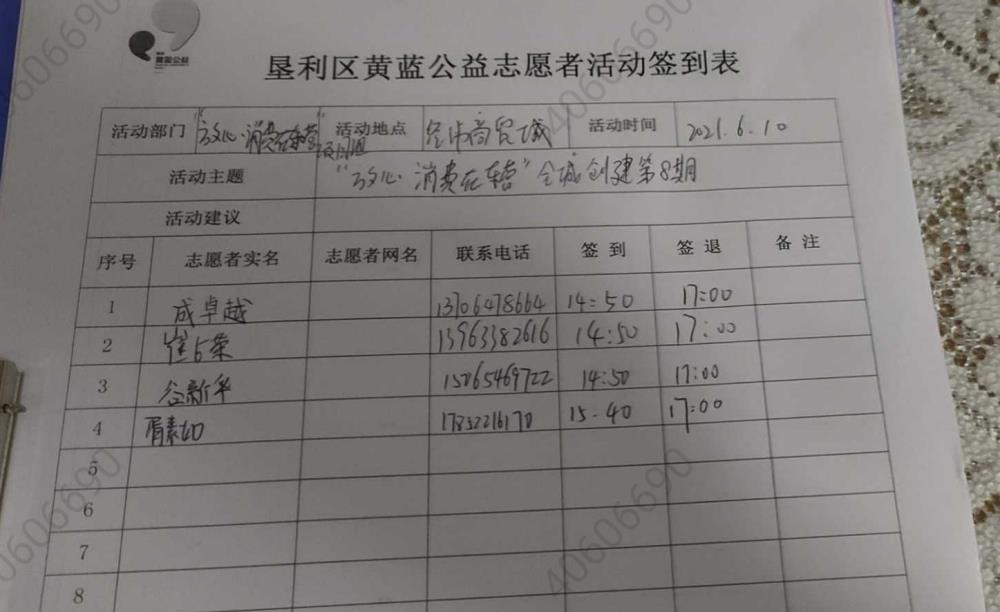 黄蓝公益
垦利区黄蓝公益志愿者活动签到表
活动部门 "放心·消费在东营"项目组 活动地点 商贸城 活动时间 2021.6.10
活动主题 "放心·消费在东营"全城创建第8期
活动建议
序号 志愿者实名 志愿者网名 联系电话 签到 签退 备注
1 成卓越 13706478664 14:50 17:00
2 13963382616 14:50 17:00
3 谷新华 15065469722 14:50 17:00
4 胥素如 17852216170 15-40 17:00
5
6
7
8
40606690
40606690
40606690
40606690